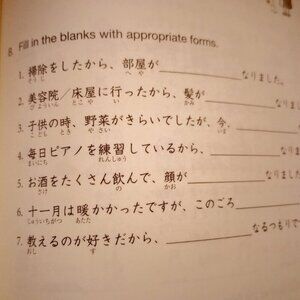 8. Fill in the blanks with appropriate forms.
1. 掃除をしたから、部屋が なりました。
そうじ へや
2. 美容院/床屋に行ったから、髪が なりま
びよういん とこや い かみ
3. 子供の時、野菜がきらいでしたが、今、
こども とき やさい いま
4. 毎日ピアノを練習しているから、
まいにち れんしゅう
5. お酒をたくさん飲んで、顔が
さけ の かお
6. 十一月は暖かかったですが、このごろ
じゅういちがつ あたた
7. 教えるのが好きだから、 なるつもりで
おし す